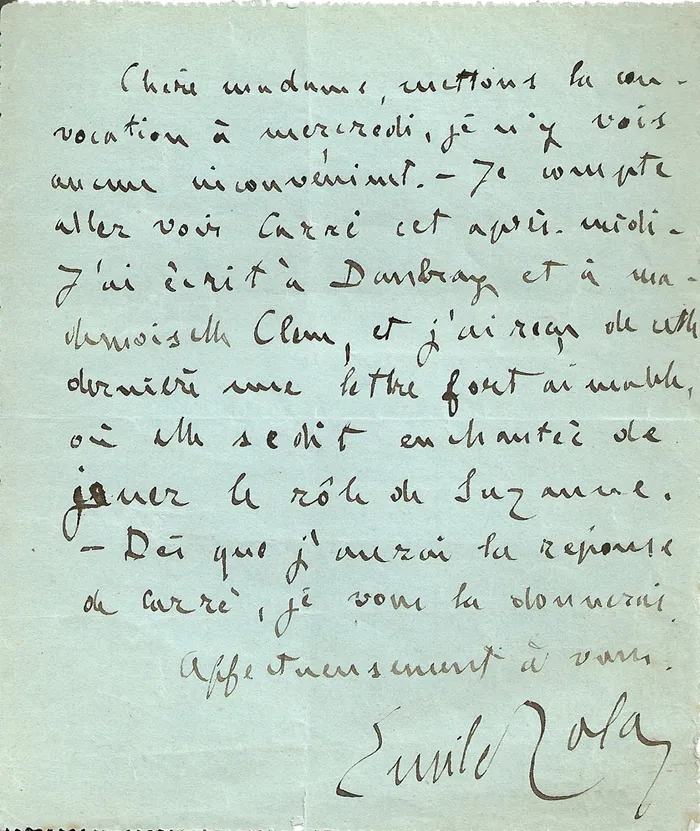 Chère madame, mettons la con-
vocation à mercredi, je n'y vois
aucun inconvénient. – Je compte
aller voir Carré cet après-midi –
J'ai écrit à Daubray et à ma-
demoiselle Clem, et j'ai reçu de cette
dernière une lettre fort aimable,
où elle se dit enchantée de
jouer le rôle de Suzanne.
– Dès que j'aurai la réponse
de Carré, je vous la donnerai.
Affectueusement à vous.
Emile Zola